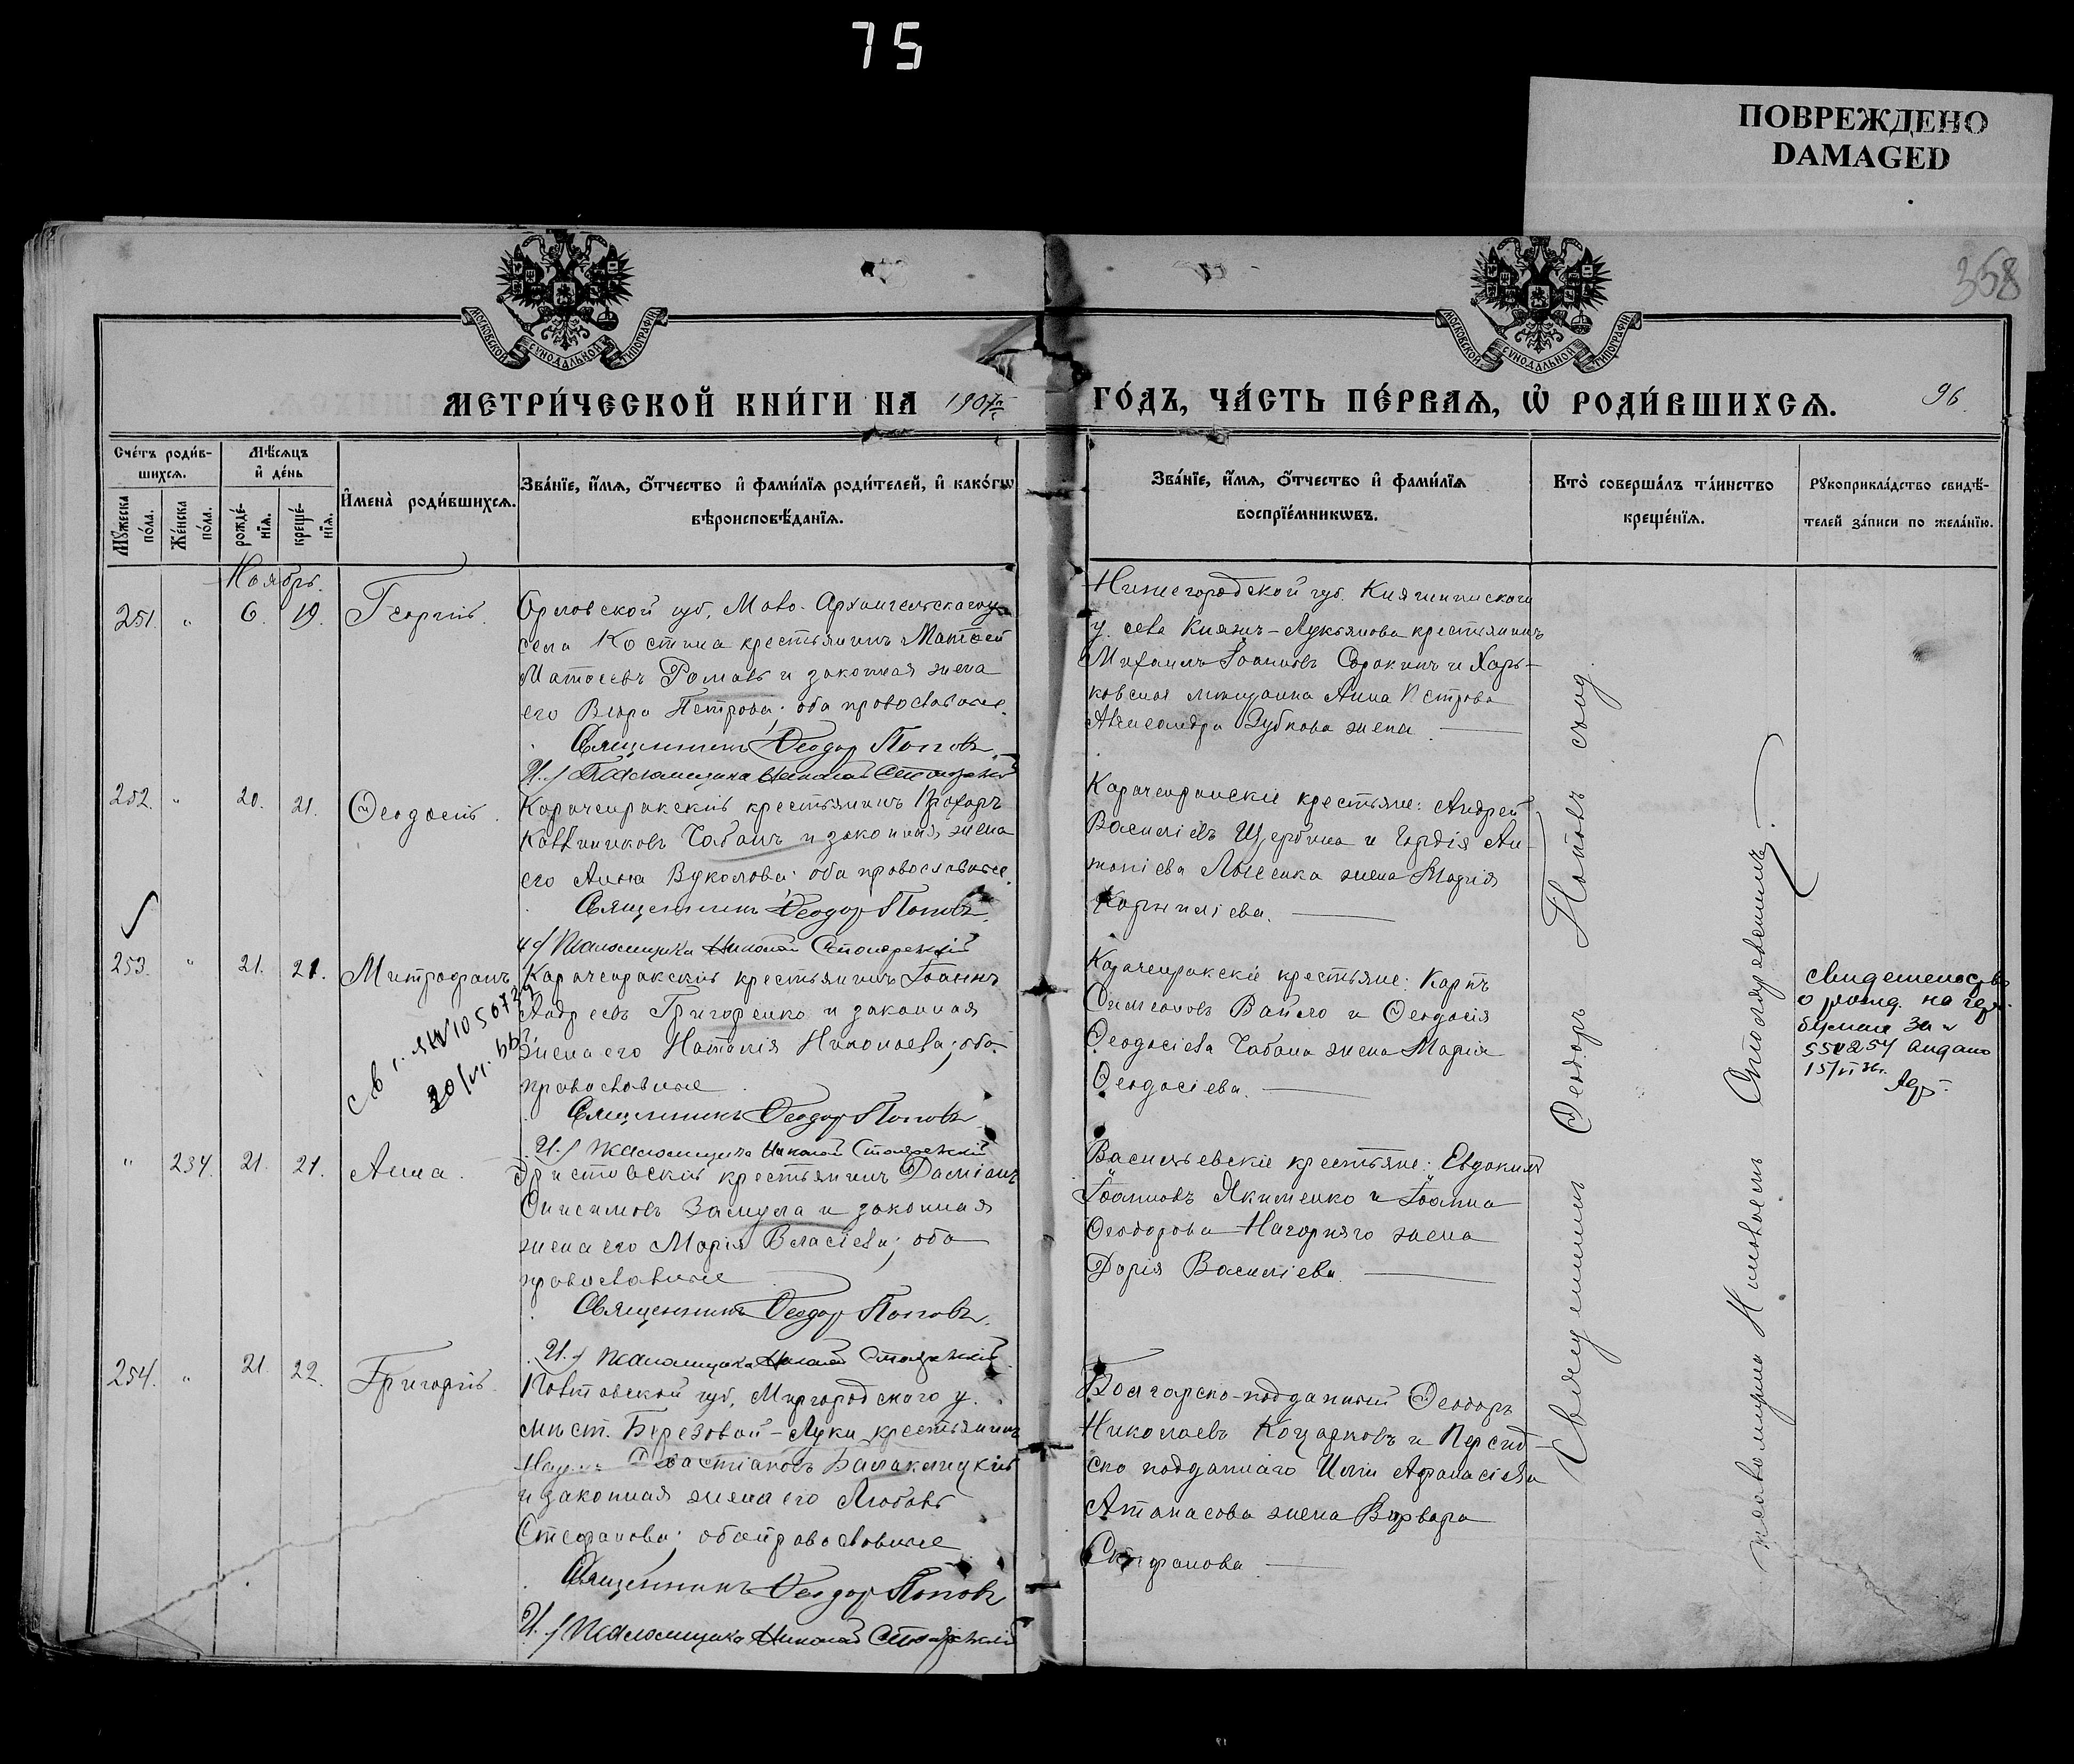 75
ПОВРЕЖДЕНО
DAMAGED
358
МОСКОВСКОЙ СѴНОДАЛЬНОЙ ТИПОГРАФІИ
МОСКОВСКОЙ СѴНОДАЛЬНОЙ ТИПОГРАФІИ
МЕТРИ́ЧЕСКОЙ КНИ́ГИ НА 1907
ГО́ДЪ, ЧА́СТЬ ПЕ́РВАѦ, Ѡ РОДИ́ВШИХСѦ.
96.
Счétъ роди́вшихсѧ.
Мꙋ́жеска по́ла.
Же́нска по́ла.
Мѣ́сѧцъ и҆ де́нь
рожде́нїѧ.
креще́нїѧ.
И҆мена̀ роди́вшихсѧ.
Зва́нїе, и҆́мѧ, ѻ҆́тчество и҆ фами́лїѧ роди́телей, и҆ како́гѡ
вѣроисповѣ́данїѧ.
Зва́нїе, и҆́мѧ, ѻ҆́тчество и҆ фами́лїѧ
воспрїе́мникѡвъ.
Кто̀ соверша́лъ та́инство
креще́нїѧ.
Рꙋкоприкла́дство свидѣ́-
телей за́писи по жела́нїю.
Ноябрь.
251. " 6. 19. Георгій.
Орловской губ, Мало-Архангельскаго у.
села Костина крестьянинъ Матѳей
Матѳеевъ и законная жена
его Вѣра Петрова; оба православные.
Священникъ Ѳеодор Поповъ
И. д. Псаломщика Николай Столяревскій
Нижегородской губ. Княгининскаго
у. села Княжъ-Лукьянова крестьянинъ
Михаилъ Іоанновъ Сорокинъ и Харь-
ковская мѣщанка Анна Петрова
Александра Зубкова жена
252. " 20. 21. Ѳеодосій.
Карачекракскій крестьянинъ Прохоръ
Каллиниковъ Чабанъ и законная жена
его Анна Вуколова; оба православные.
Священникъ Ѳеодор Поповъ.
И. д. Псаломщика Николай Столяревскій
Карачекракскіе крестьяне: Андрей
Василіевъ Щербина и Гордія Ан-
тоніева Лысенка жена Марія
Корниліева.
253. " 21. 21. Митрофанъ
Карачекракскій крестьянинъ Іоаннъ
Андреевъ Григоренко и законная
жена его Наталія Николаева; оба
православные
Священникъ Ѳеодор Поповъ
И. д. Псаломщика Николай Столяревскій
Карачекракскіе крестьяне: Карпъ
Симеоновъ Вайло и Ѳеодосія
Ѳеодосіева Чабана жена Марія
Ѳеодосіева.
Свидетельство
о рожд. на герб.
бумаге за №
551254 выдано
15/VI 36г.
" 234. 21. 21. Анна.
Эристовскій крестьянинъ Даміанъ
Онисимовъ Замула и законная
жена его Марія Власіева; оба
православные
Священникъ Ѳеодор Поповъ.
И. д. Псаломщика Николай Столяревскій
Васильевскіе крестьяне: Евдокимъ
Іоанновъ Якименко и Іоанна
Ѳеодорова Нагорняго жена
Дарія Василіева.
254. " 21. 22. Григорій.
Полтавской губ, Миргородского у.
мѣст. Березовой-Луки крестьянинъ
Наумъ Севастіановъ Балаклицкій
и законная жена его Любовь
Стефанова; оба православные
Священникъ Ѳеодор Поповъ
И. д. Псаломщика Николай Столяревскій
Болгарско-подданный Ѳеодоръ
Николаевъ Коцарковъ и Персид-
ско подданнаго Иліи Афанасіева
Атанасова жена Варвара
Стефанова
Священникъ Ѳеодоръ Поповъ съ и. д.
псаломщика Николаемъ Столяревскимъ.